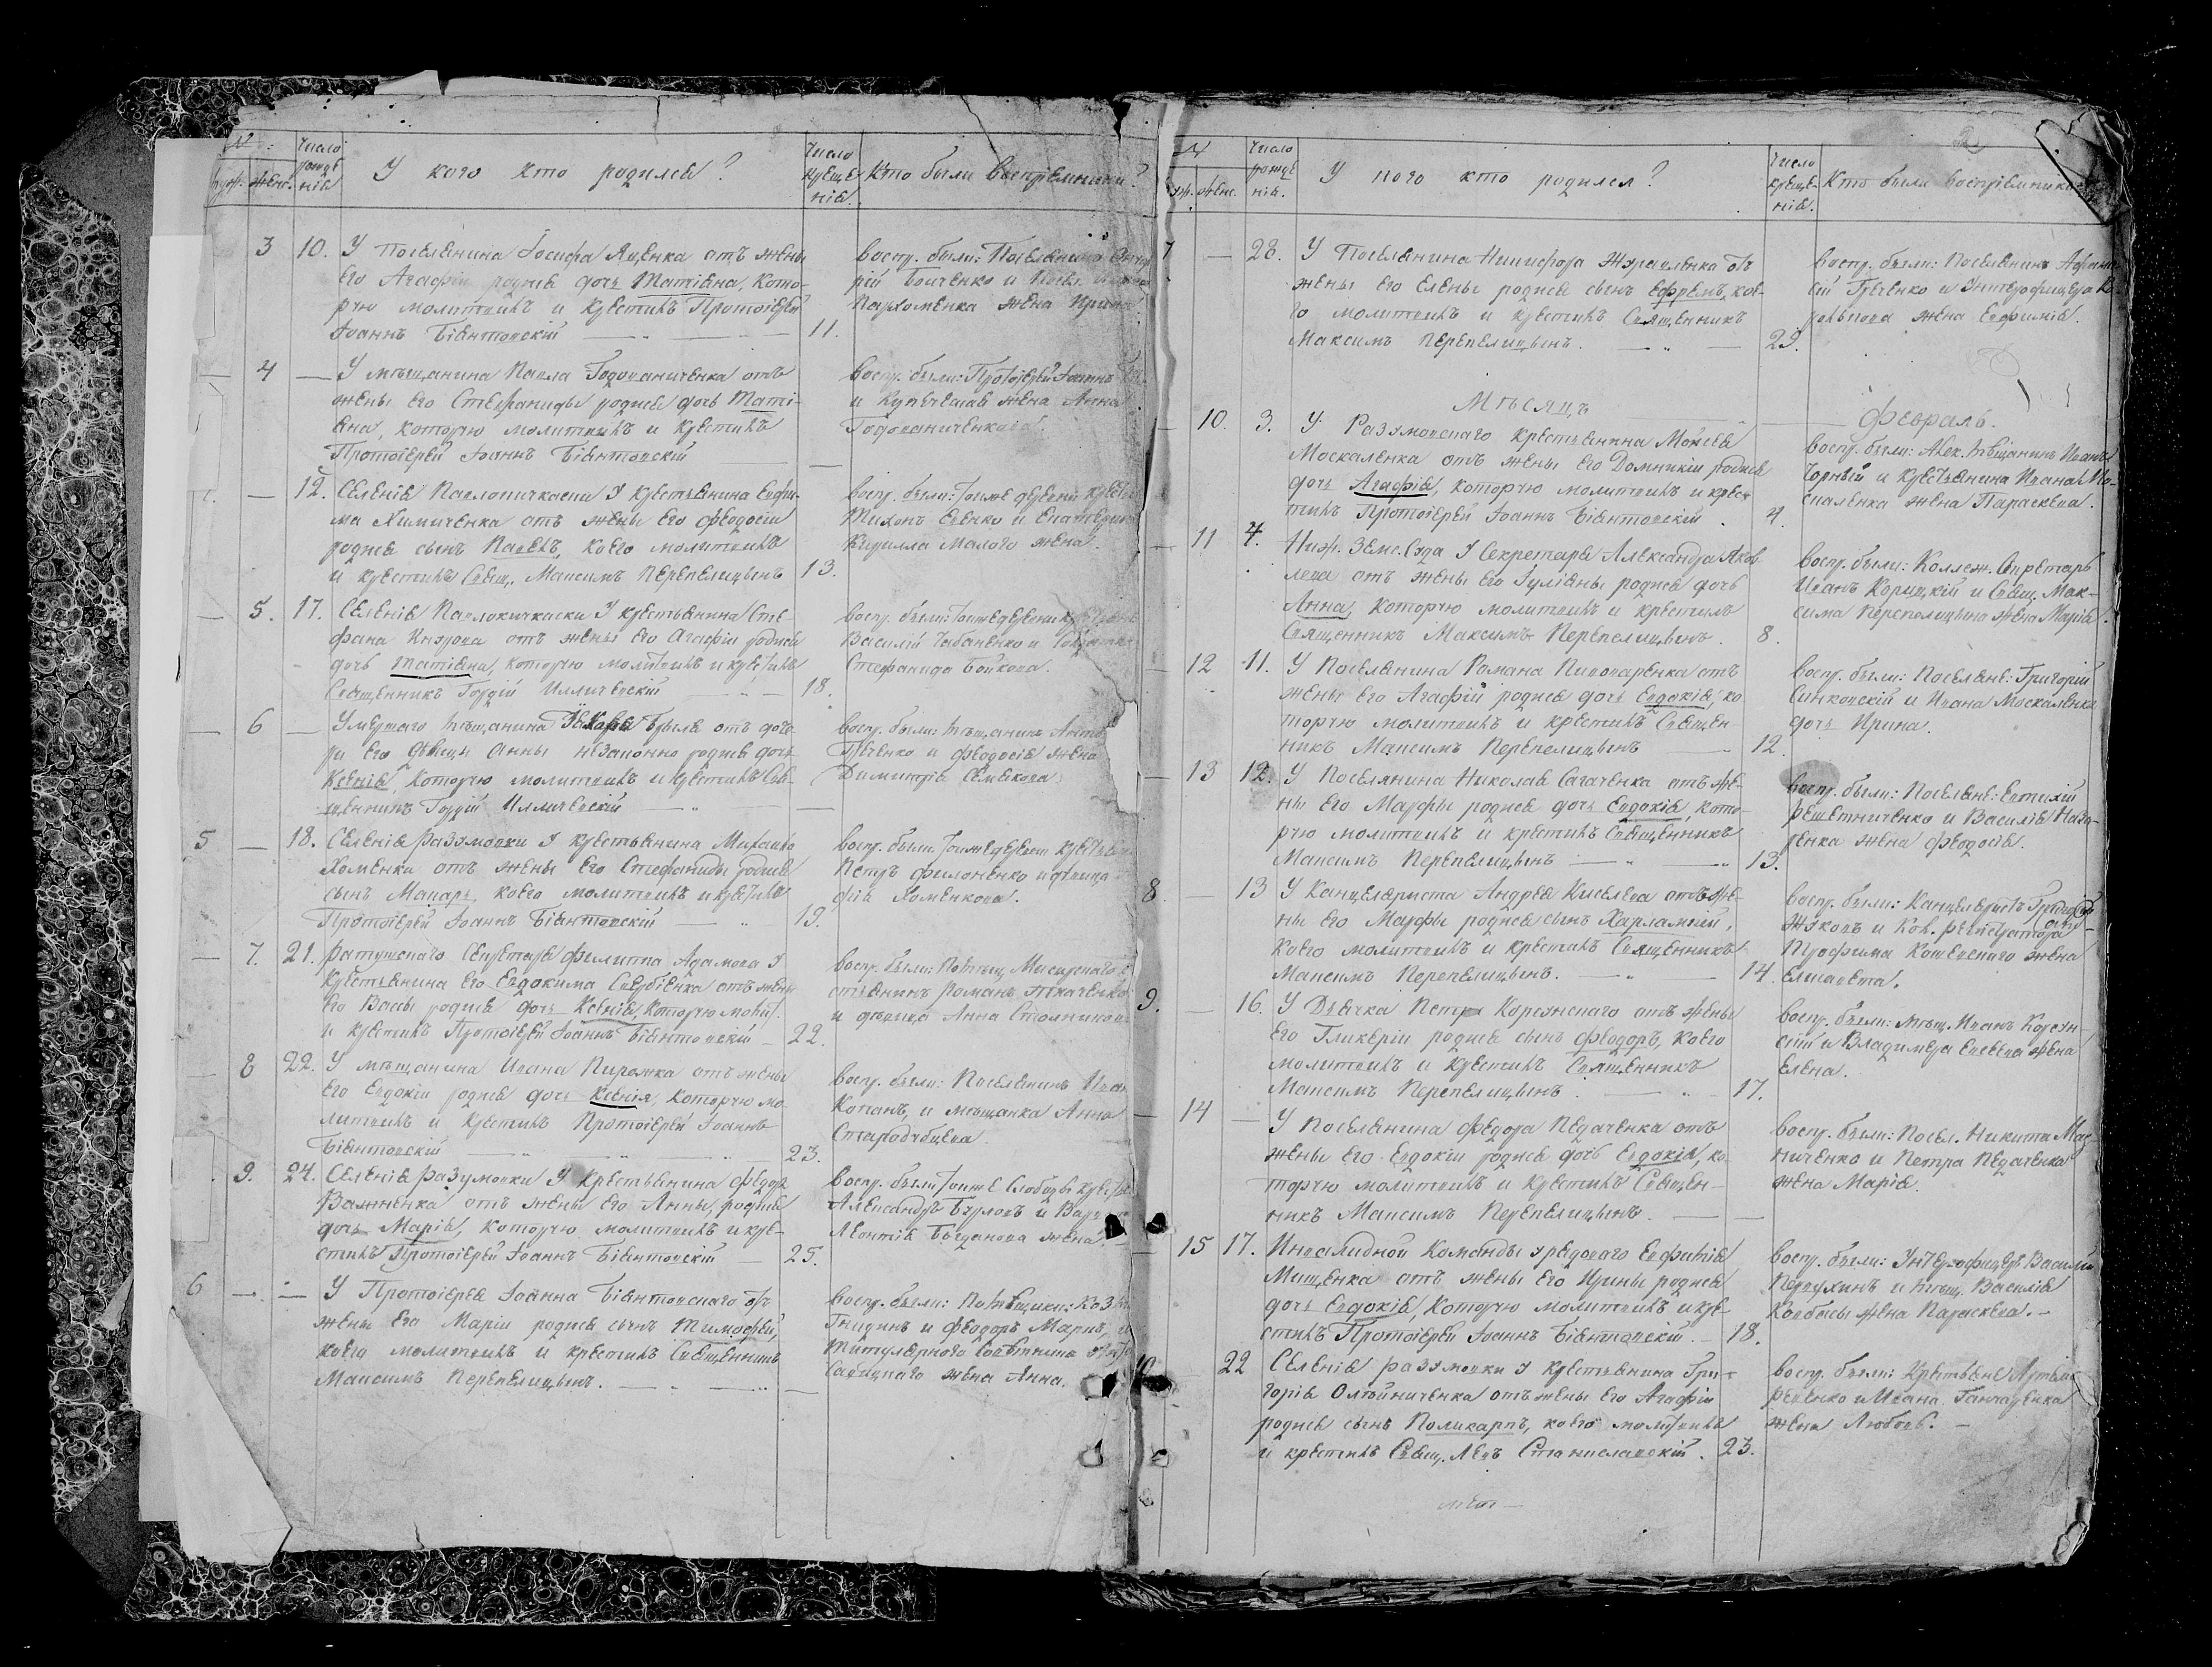 №:
Число рожде-
нія
У кого кто родился?
Число
креще-
нія.
Кто были воспріемники?
муж. жен.
3 10. У поселянина Іосифа Яценка отъ жены
его Агафіи родися дочь Татіана, кото-
рую молитвилъ и крестилъ Протоіерей
Іоаннъ Біянтовскій 11.
воспр. были: Поселянинъ
рій Бойченко и
Пархоменка жена Ирина
4 — У мѣщанина Павла Годованиченка отъ
жены его Стефаниды родися дочь Таті-
ана, которую молитвилъ и крестилъ
Протоіерей Іоаннъ Біянтовскій —
воспр. были: Протоіерей Іоаннъ
и купеческая жена Анна
Годованиченкова.
— 12. Селенія Павлокичкаски у крестьянина Евфи-
ма Химиченка отъ жены его Феодосіи
родися сынъ Павелъ, коего молитвилъ
и крестилъ Свящ. Максимъ Перепелицынъ 13.
воспр. были: Тоижъ деревни
Тихонъ Еленко и Екатерина
Кирилла Малого жена.
5. 17. Селенія Павлокичкаски у крестьянина Сте-
фана отъ жены его Агафіи родися
дочь Татіана, которую молитвилъ и крестилъ
Священникъ Гордій Илличевскій 18.
воспр. были: Тоижъ деревни
Василій Чабаненко и
Стефанида Бойкова.
6 — Умершаго мѣщанина Захаріи отъ доче-
ри его дѣвицы Анны незаконно родися дочь
Ксенія, которую молитвилъ и крестилъ Свя-
щенникъ Гордій Илличевскій —
воспр. были: мѣщанинъ
и Феодосія жена
Димитрія Семекова
5 — 18. Селенія Разумовки у крестьянина Михаила
Хоменка отъ жены его Стефаниды родися
сынъ Макаръ, коего молитвилъ и крестилъ
Протоіерей Іоаннъ Біянтовскій 19.
воспр. были: Тоижъ деревни
Петръ Филоненко и дѣвица
фія Хоменкова.
7. 21. Ратушскаго Секретаря Филиппа Адамова у
крестьянина его Евдокима Свербіенка отъ жены
его Вассы родися дочь Ксенія, которую молит.
и крестилъ Протоіерей Іоаннъ Біянтовскій 22.
воспр. были:
Романъ Ткаченко
и дѣвица Анна
8 22. У мѣщанина Ивана Пирожка отъ жены
его Евдокіи родися дочь Ксенія, которую мо-
литвилъ и крестилъ Протоіерей Іоаннъ
Біянтовскій 23.
воспр. были: Поселянинъ
Копанъ, и мѣщанка Анна
Стародубцева.
9. 24. Селенія Разумовки у крестьянина Федора
Важненка отъ жены его Анны, родися
дочь Марія, которую молитвилъ и кре-
стилъ Протоіерей Іоаннъ Біянтовскій 25.
воспр. были Тоижъ слободы
Александръ Бурловъ и
Леонтія Богданова жена.
6 — — У Протоіерея Іоанна Біянтовскаго отъ
жены его Маріи родися сынъ Тимофей,
коего молитвилъ и крестилъ Священникъ
Максимъ Перепелицынъ. —
воспр. были: Помѣщики:
Гнидинъ и Феодоръ Маринъ,
Титулярнаго Совѣтника
Савицкаго жена Анна.
№
Число
рожде-
нія.
У кого кто родился?
Число
креще-
нія.
Кто были воспріемники
муж. жен.
7 — 28. У Поселянина Никифора Журавленка отъ
жены его Елены родися сынъ Ефремъ, кое-
го молитвилъ и крестилъ Священникъ
Максимъ Перепелицынъ. 29.
воспр. были: Поселянинъ
Греченко и Унтерофицера
жена Евфимія.
Мѣсяцъ Февраль.
10. 3. У Разумовскаго крестьянина Моисея
Москаленка отъ жены его Домникіи родися
дочь Агафія, которую молитвилъ и крес-
тилъ Протоіерей Іоаннъ Біянтовскій. 4.
воспр. были: Алек. мѣщанинъ Иванъ
Чорный и крестьянина Ивана Мо-
скаленка жена Параскева.
11 4. Ниж. Земс. Суда у Секретаря Александра Яков-
лева отъ жены его Іуліаны родися дочь
Анна, которую молитвилъ и крестилъ
Священникъ Максимъ Перепелицынъ. 8.
воспр. были: Коллеж. Секретарь
Иванъ Корицкій и Свящ. Мак-
сима Перепелицына жена Марія.
12 11. У Поселянина Романа Пивоваренка отъ
жены его Агафіи родися дочь Евдокія, ко-
торую молитвилъ и крестилъ Священ-
никъ Максимъ Перепелицынъ 12.
воспр. были: Поселяне: Григорій
Синковскій и Ивана Москаленка
дочь Ирина.
13 12. У Поселянина Николая Сагаченка отъ же-
ны его Марфы родися дочь Евдокія, кото-
рую молитвилъ и крестилъ Священникъ
Максимъ Перепелицынъ 13.
воспр. были: Поселяне: Евтихій
Решетниченко и Василія Наза-
ренка жена Феодосія.
8. — 13 У Канцеляриста Андрея Киселева отъ же-
ны его Марфы родися сынъ Харлампій,
коего молитвилъ и крестилъ Священникъ
Максимъ Перепелицынъ. 14.
воспр. были: Канцеляристъ Григорій
Жуковъ и Кол. регистратора
Трофима жена
Елисавета.
9. — 16. У Дьячка Петра Корсунскаго отъ жены
его Гликеріи родися сынъ Феодоръ, коего
молитвилъ и крестилъ Священникъ
Максимъ Перепелицынъ. 17.
воспр. были: мѣщ. Иванъ Корсун-
скій и Владимера Елеева жена
Елена.
14 — У Поселянина Федора Педаченка отъ
жены его Евдокіи родися дочь Евдокія, ко-
торую молитвилъ и крестилъ Священ-
никъ Максимъ Перепелицынъ. —
воспр. были: Посел. Никита
ниченко и Петра Педаченка
жена Марія.
15 17. Инвалидной Команды у рядоваго Евфимія
Мищенка отъ жены его Ирины родися
дочь Евдокія, которую молитвилъ и кре-
стилъ Протоіерей Іоаннъ Біянтовскій. 18.
воспр. были: Унтерофицеръ Василій
и мѣщ. Василія
Ковбасы жена Параскева.
10 22 Селенія Разумовки у крестьянина Гри-
горія Олейниченка отъ жены его Агафіи
родися сынъ Поликарпъ, коего молитвилъ
и крестилъ Свящ. Левъ Станиславскій. 23.
воспр. были: крестьяне
и Ивана Гончаренка
жена Любовь.